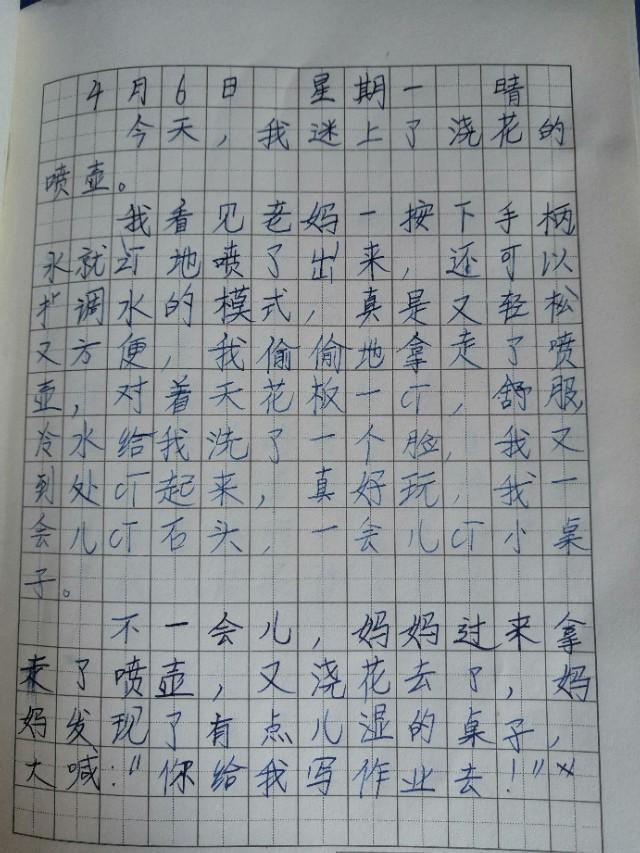 4月6日 星期一 晴
今天，我迷上了浇花的
喷壶。
我看见老妈一按下手柄
水就 地喷了出来，还可以
调水的模式，真是又轻松
又方便，我偷偷地拿走了喷
壶，对着天花板一 ，舒服
冷水给我洗了一个脸，我又
到处 起来，真好玩，我一
会儿 石头，一会儿 小桌
子。
不一会儿，妈妈过来拿
走了喷壶，又浇花去了，妈
妈发现了有点儿湿的桌子，
大喊：“你给我写作业去！”